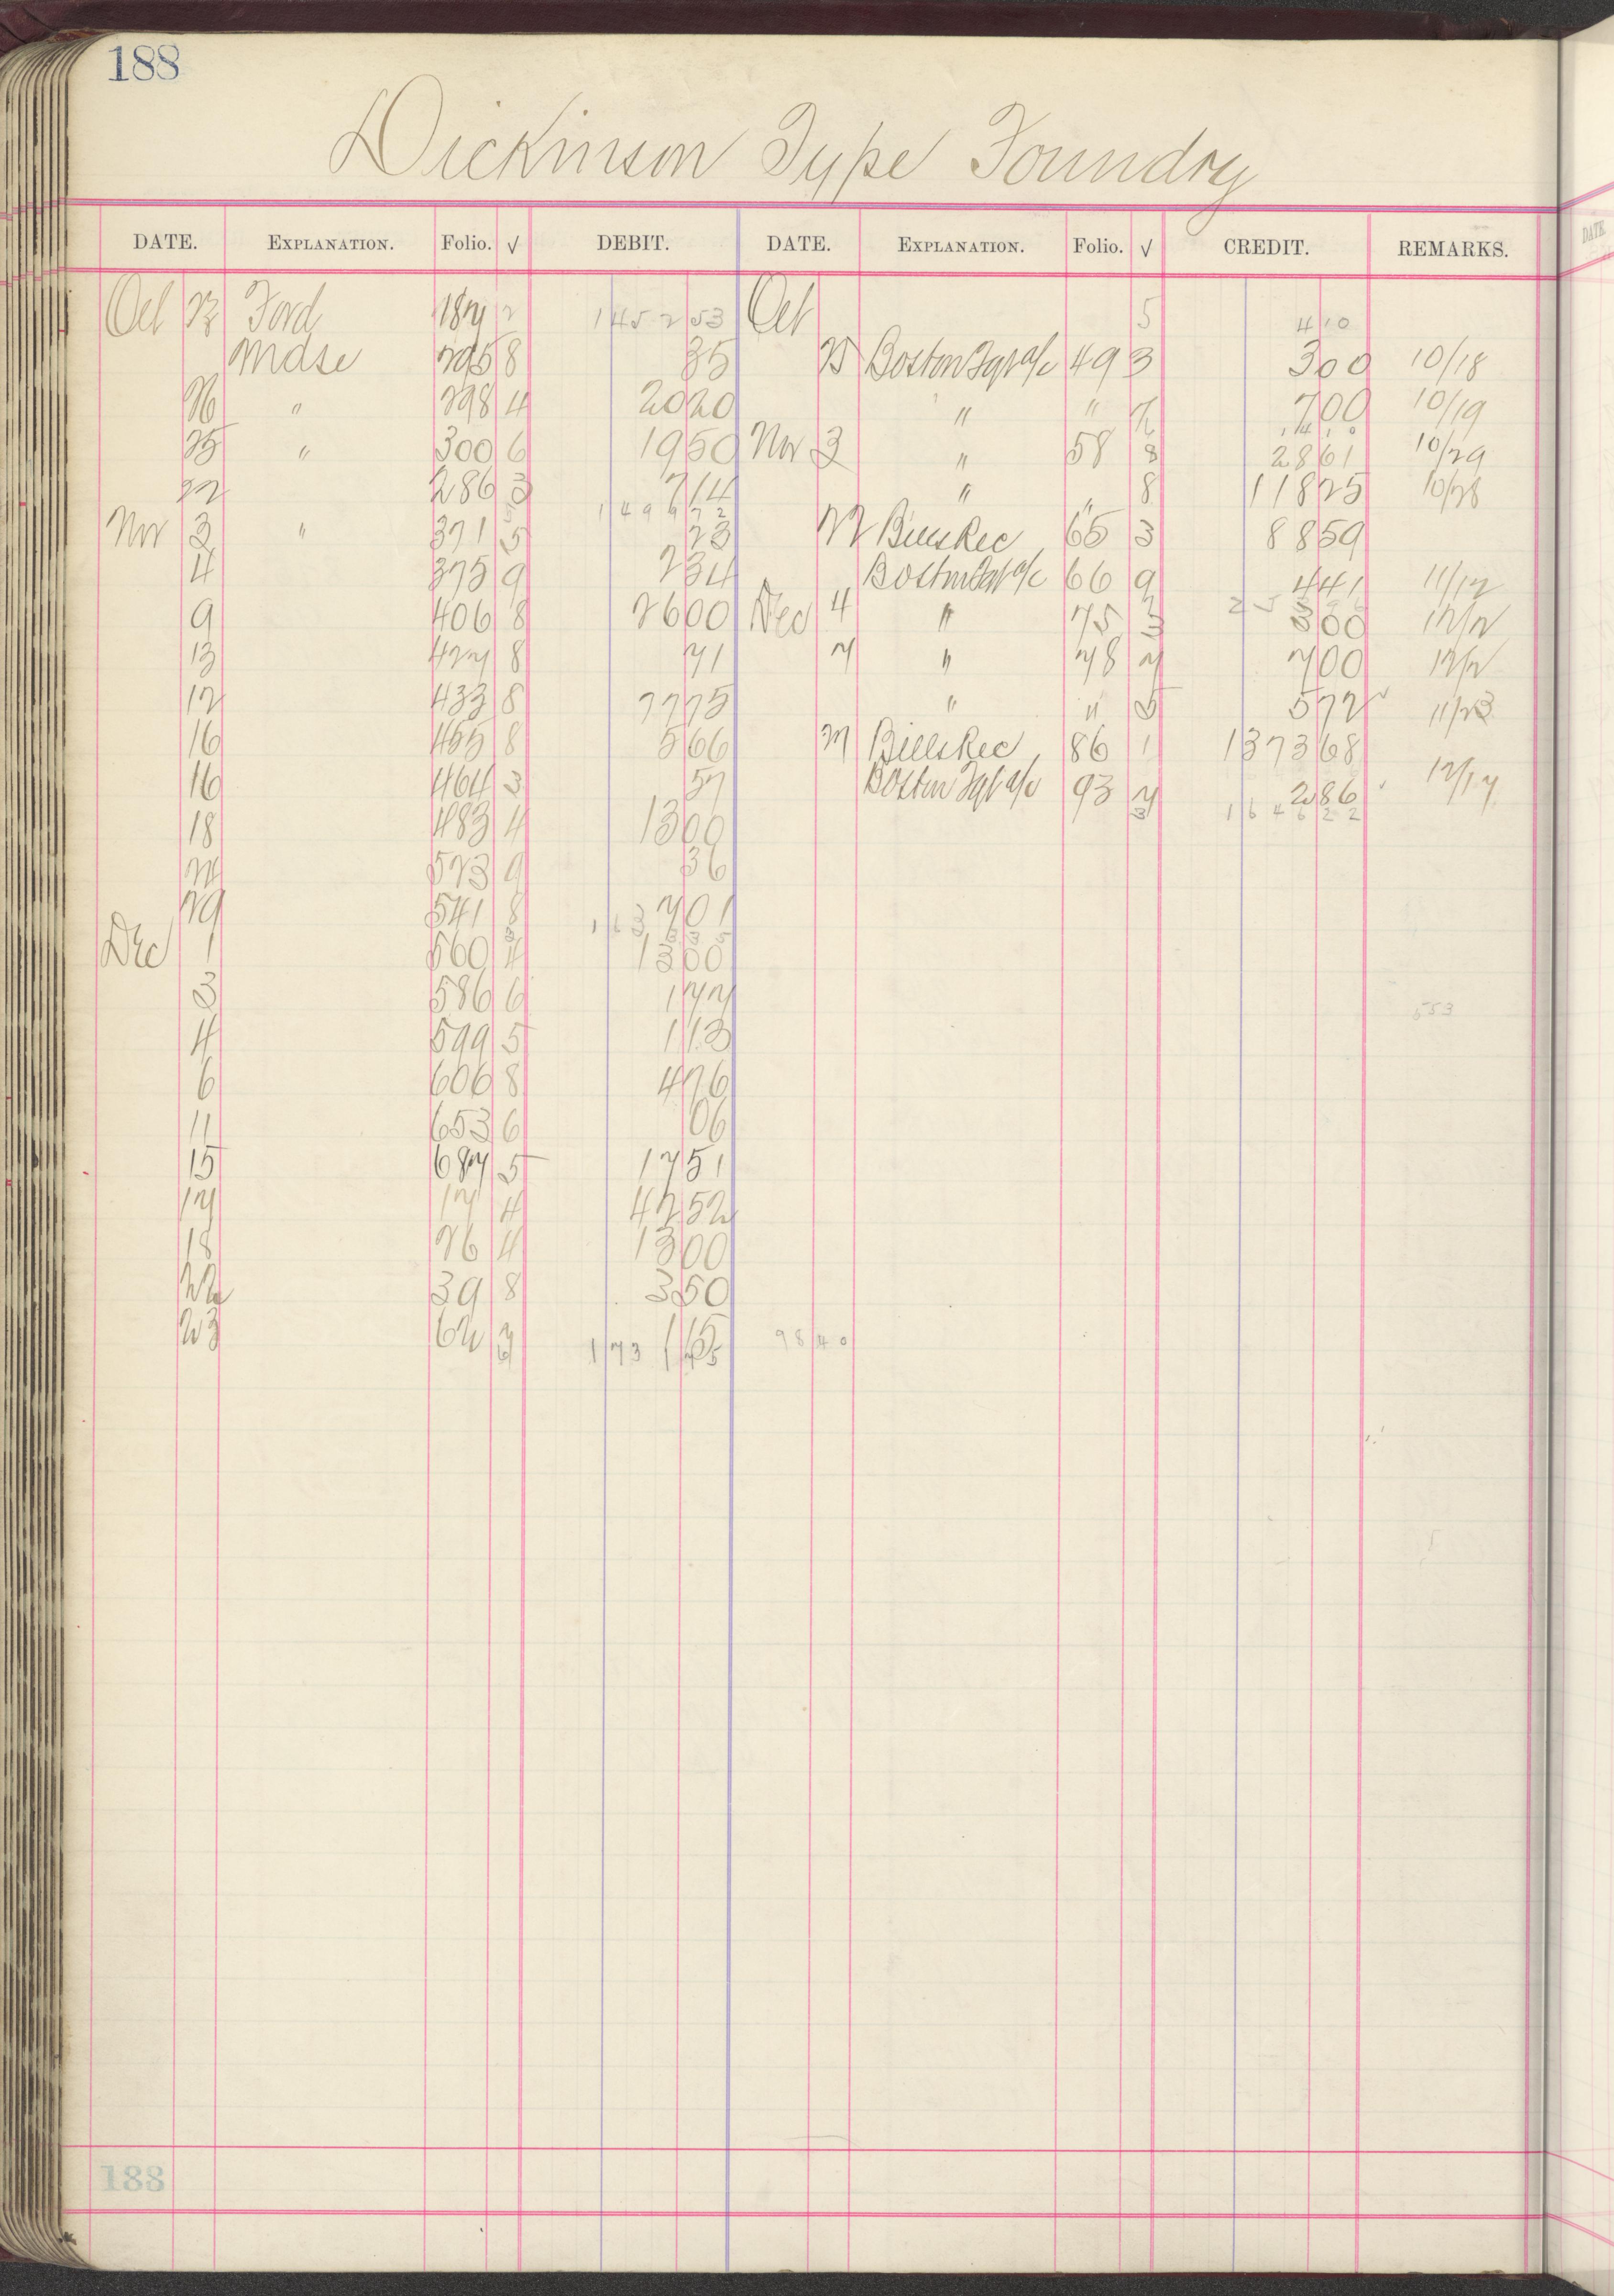 188
Dickinson Type Foundry
DATE. EXPLANATION. Folio. √ DEBIT. DATE. EXPLANATION. Folio. √ CREDIT. REMARKS.
Oct 23 Ford 187 2 1452 53 Oct 5 4 10
Mdse 295 8 35 25 Boston Tgt a/c 49 3 3 00 10/18
26 " 298 4 20 20 " " 7 00 10/19
25 " 300 6 19 50 Nov 3 " 58 8 28 61 10/29
22 286 3 7 14 " " 8 118 25 10/28
1 49 9 72 14 10
Nov 3 " 371 5 23 22 Bills Rec 65 3 88 59
4 375 9 2 34 Boston Tgt a/c 66 9 4 41 11/12
9 406 8 26 00 Dec 4 " 75 3 3 00 12/2
13 427 8 71 7 " 78 7 7 00 12/2
12 433 8 27 75 " " 5 5 72 11/23
16 455 8 5 66 21 Bills Rec 86 1 1373 68
16 464 3 57 Boston Tgt a/c 93 7 2 86 12/17
18 483 4 13 00 1 6 4 6 2 2
24 523 9 36
29 541 8 7 01
Dec 1 560 4 13 00
3 586 6 1 77 553
4 599 5 1 13
6 606 8 4 26
11 653 6 06
15 687 5 17 51
17 17 4 42 52
18 26 4 13 00
22 39 8 3 50
23 62 7 1 15 98 40
188